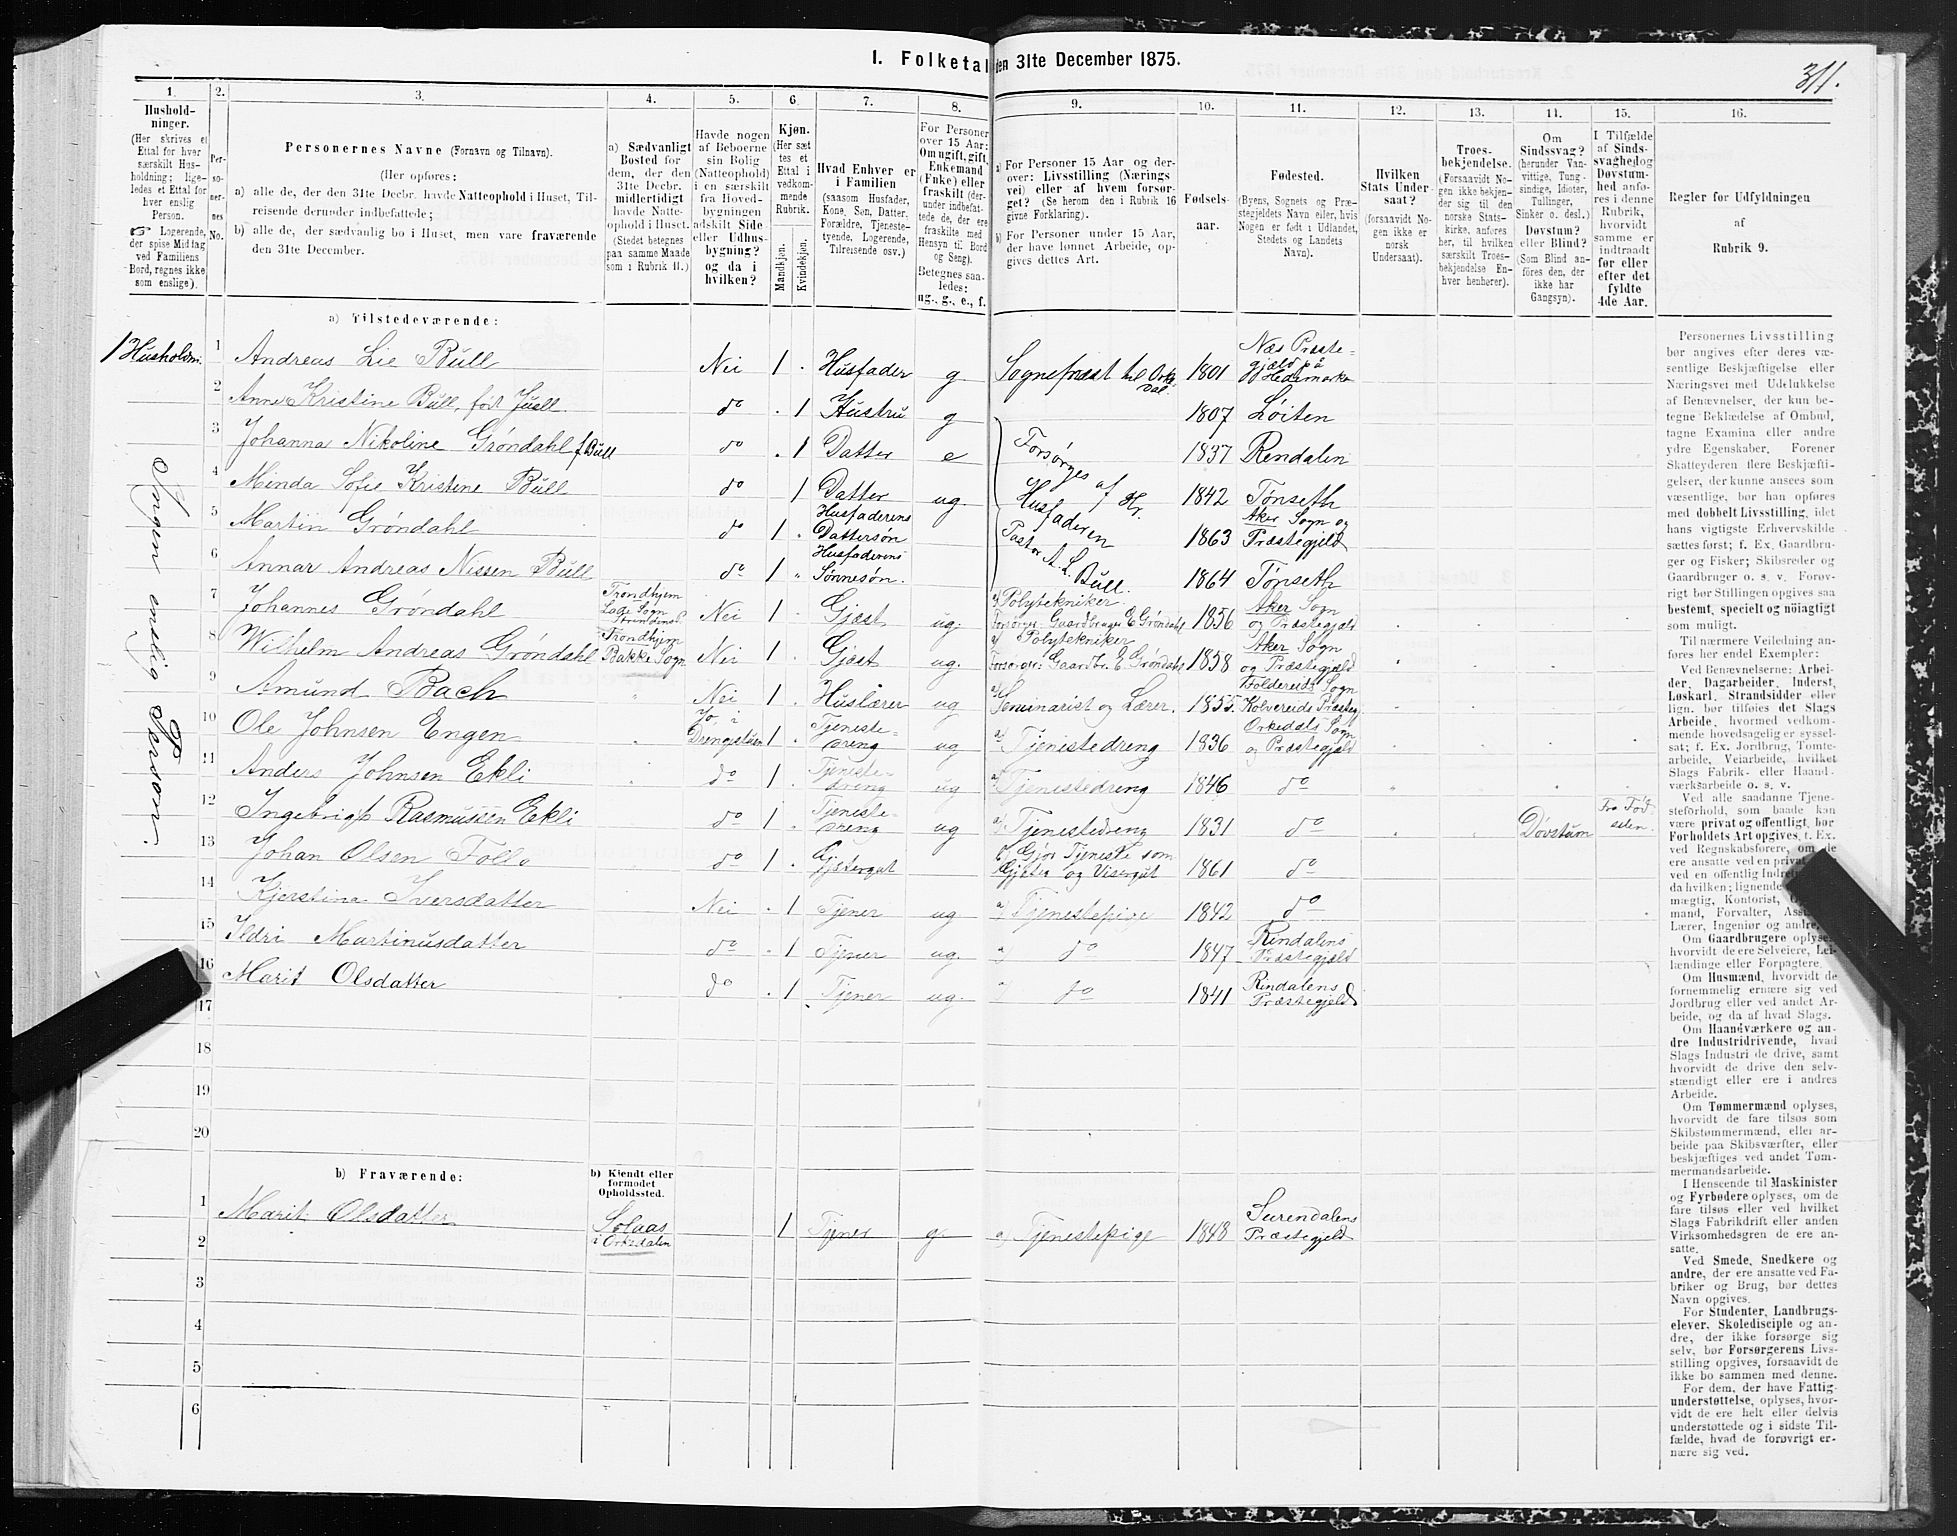 I. Folketal den 31te December 1875.
311.
1.
2.
3.
4.
5.
6.
7.
8.
9.
10.
11.
12.
13.
11.
15.
16.
Hushold-
ninger.
(Her skrives et
Ettal for hver
særskilt Hus-
holdning; lige-
ledes et Ettal for
hver enslig
Person.
Logerende,
der spise Middag
ved Familiens
Bord, regnes ikke
som enslige).
Per-
so-
ner-
nes
No.
Personernes Navne (Fornavn og Tilnavn).
(Her opføres:
a) alle de, der den 31te Decbr. havde Natteophold i Huset, Til-
reisende derunder indbefattede;
b) alle de, der sædvanlig bo i Huset, men vare fraværende
den 31te December.
a) Sædvanligt
Bosted for
dem, der den
31te Decbr.
midlertidigt
havde Natte-
ophold i Huset.
(Stedet betegnes
paa samme Maade
som i Rubrik 11.)
Havde nogen
af Beboerne
sin Bolig
(Natteophold)
i en særskilt
fra Hoved-
bygningen
adskilt Side-
eller Udhus-
bygning?
og da i
hvilken?
Kjøn.
(Her sæt-
tes et
Ettal i
vedkom-
mende
Rubrik.
Mandkjøn.
Kvindekjøn.
Hvad Enhver er
i Familien
(saasom Husfader,
Kone, Søn, Datter,
Forældre, Tjeneste-
tyende, Logerende,
Tilreisende osv.)
For Personer
over 15 Aar:
Om ugift, gift,
Enkemand
(Enke) eller
fraskilt (der-
under indbefat-
tede de, der ere
fraskilte med
Hensyn til Bord
og Seng).
Betegnes saa-
ledes:
ug., g., e., f.
a) For Personer 15 Aar og der-
over: Livsstilling (Nærings-
vei) eller af hvem forsør-
get? (Se herom den i Rubrik 16
givne Forklaring).
b) For Personer under 15 Aar,
der have lønnet Arbeide, op-
gives dettes Art.
Fødsels-
aar.
Fødested.
(Byens, Sognets og Præ-
stegjeldets Navn eller, hvis
Nogen er født i Udlandet,
Stedets og Landets
Navn).
Hvilken
Stats Under-
saat?
(forsaavidt No-
gen ikke er
norsk
Undersaat).
Troes-
bekjendelse.
(Forsaavidt No-
gen ikke bekjen-
der sig til den
norske Stats-
kirke, anføres
her, til hvilken
særskilt Troes-
bekjendelse En-
hver henhører).
Om
Sindssvag?
(herunder Van-
vittige, Tung-
sindige, Idioter,
Tullinger,
Sinker o. desl.)
Døvstum?
eller Blind?
(Som Blind an-
føres den, der
ikke har
Gangsyn).
I Tilfælde
af Sinds-
svaghed og
Døvstum-
hed anfø-
res i denne
Rubrik,
hvorvidt
samme er
indtraadt
før eller
efter det
fyldte
4de Aar.
Regler for Udfyldningen
af
Rubrik 9.
a) Tilstedeværende:
1 Husholdn.
Ingen enslig Person.
1 Andreas Lie Bull Nei 1 Husfader g Sognepræst til Orkedal. 1801 Næs Præste-gjæld på Hedemarken
2 Anne Kristine Bull, født Juell do 1 Hustru g 1807 Løiten
3 Johanna Nikoline Grøndahl f Bull do 1 Datter e 1837 Rendalen
4 Minda Sofie Kristine Bull do 1 Datter ug. 1842 Tønseth
5 Martin Grøndahl do 1 Husfaderens Dattersøn 1863 Aker Sogn og Præstegjeld
6 Annar Andreas Nissen Bull do 1 Husfaderens Sønnesøn. 1864 Tønseth
Forsørges af Husfaderen Hr. Pastor A. L. Bull.
7 Johannes Grøndahl Trondhjem Lade Sogn Strinden Nei 1 Gjæst ug. a) Polytekniker Forsørger: Gaardbruger E Grøndahl 1856 Aker Sogn og Præstegjæld
8 Wilhelm Andreas Grøndahl Trondhjem Bakke Sogn Nei 1 Gjæst ug. a) Polytekniker Forsørger: Gaardbr. E. Grøndahl 1858 Aker Sogn og Præstegjæld
9 Amund Bach Nei 1 Huslærer ug a) Seminarist og Lærer. 1855 Foldereids Sogn Kolvereids Præsteg
10 Ole Johnsen Engen Jo, i Drengestuen 1 Tjeneste-dreng ug a) Tjenestedreng 1836 Orkedals Sogn og Præstegjæld
11 Anders Johnsen Ekli do 1 Tjeneste-dreng ug a) Tjenestedreng 1846 do
12 Ingebrigt Rasmussen Ekli do 1 Tjeneste-dreng ug a) Tjenestedreng 1831 do Døvstum Fra Fødselen.
13 Johan Olsen Follo do 1 Gjætergut b) Gjør Tjeneste som Gjæter og Visergut 1861 do
14 Kjerstina Iversdatter Nei 1 Tjener ug a) Tjenestepige 1842 do
15 Ildri Martinusdatter do 1 Tjener ug a) do 1847 Rindalens Præstegjæld
16 Marit Olsdatter do 1 Tjener ug. a) do 1841 Rindalens Præstegjeld
17
18
19
20
b) Fraværende:
b) Kjendt eller
formodet
Opholdssted.
1 Marit Olsdatter Solaas i Orkedalen 1 Tjener g. a) Tjenestepige 1848 Surendalens Præstegjeld
2
3
4
5
6
Personernes Livsstilling
bør angives efter deres væ-
sentlige Beskjæftigelse eller
Næringsvei med Udelukkelse
af Benævnelser, der kun be-
tegne Beklædelse af Ombud,
tagne Examina eller andre
ydre Egenskaber. Forener
Skatteyderen flere Beskjæfti-
gelser, der kunne ansees som
væsentlige, bør han opføres
med dobbelt Livsstilling, idet
hans vigtigste Erhvervskilde
sættes først; f. Ex. Gaardbru-
ger og Fisker; Skibsreder og
Gaardbruger o. s. v. Forøv-
rigt bør Stillingen opgives saa
bestemt, specielt og nøiagtigt
som muligt.
Til nærmere Veiledning an-
føres her endel Exempler:
Ved Benævnelserne: Arbei-
der, Dagarbeider, Inderst,
Løskarl, Strandsidder eller
lign. bør tilføies det Slags
Arbeide, hvormed vedkom-
mende hovedsagelig er syssel-
sat; f. Ex. Jordbrug, Tomte-
arbeide, Veiarbeide, hvilket
Slags Fabrik- eller Haand-
værksarbeide o. s. v.
Ved alle saadanne Tjene-
steforhold, som baade kan
være privat og offentligt, bør
Forholdets Art opgives, f. Ex.
ved Regnskabsførere, om de
ere ansatte ved en privat
ved en offentlig Indret
da hvilken; lignende
mægtig, Kontorist,
mand, Forvalter,
Lærer, Ingeniør og andre.
Om Gaardbrugere oplyses,
hvorvidt de ere Selveiere, Lei-
lændinge eller Forpagtere.
Om Husmænd, hvorvidt de
fornemmelig ernære sig ved
Jordbrug eller ved andet Ar-
beide, og da af hvad Slags.
Om Haandværkere og an-
dre Industridrivende, hvad
Slags Industri de drive, samt
hvorvidt de drive den selv-
stændigt eller ere i andres
Arbeide.
Om Tømmermænd oplyses,
hvorvidt de fare tilsøs som
Skibstømmermænd, eller ar-
beide paa Skibsværfter, eller
beskjæftiges ved andet Tøm-
mermandsarbeide.
I Henseende til Maskinister
og Fyrbødere oplyses, om de
fare tilsøs eller ved hvilket
Slags Fabrikdrift eller anden
Virksomhedsgren de ere an-
satte.
Ved Smede, Snedkere og
andre, der ere ansatte ved Fa-
briker og Brug, bør dettes
Navn opgives.
For Studenter, Landbrugs-
elever, Skoledisciple og an-
dre, der ikke forsørge sig
selv, bør Forsørgerens Livs-
stilling opgives, forsaavidt de
ikke bo sammen med denne.
For dem, der have Fattig-
understøttelse, oplyses, hvor-
vidt de ere helt eller delvis
understøttede og i sidste Til-
fælde, hvad de forøvrigt er-
nære sig ved.